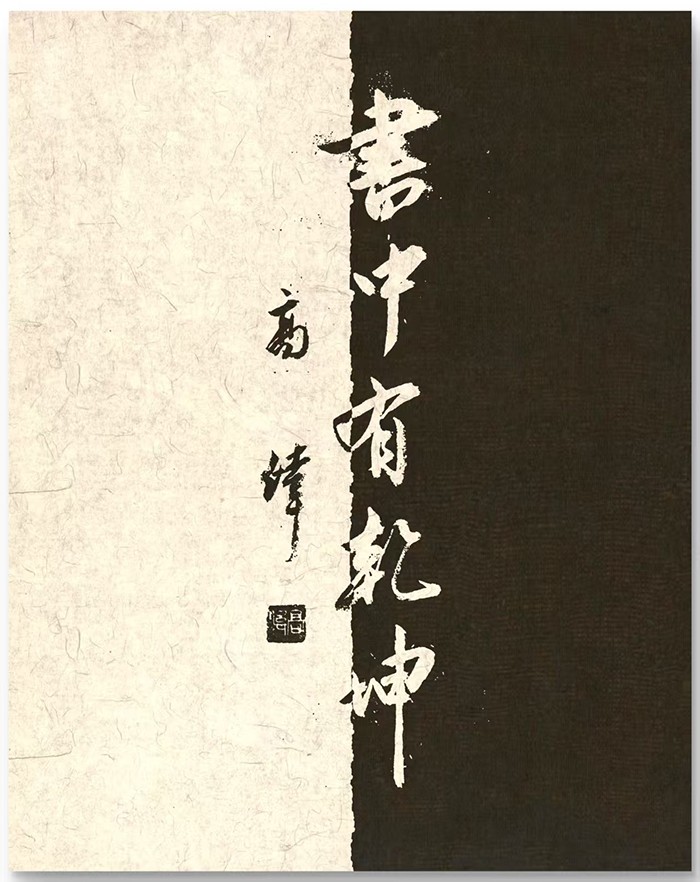 書中有乾坤
高偉